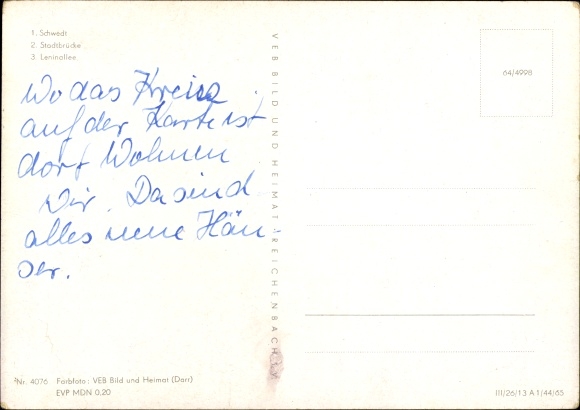 1. Schwedt
2. Stadtbrücke
3. Leninallee
Wo das Kreiuz
auf der Karte ist
dort Wohnen
Wir. Da sind
alles neue Häu-
ser.
VEB BILD UND HEIMAT REICHENBACH i. V.
64/4998
³Nr. 4076 Farbfoto: VEB Bild und Heimat (Darr)
EVP MDN 0,20
III/26/13 A 1/44/65